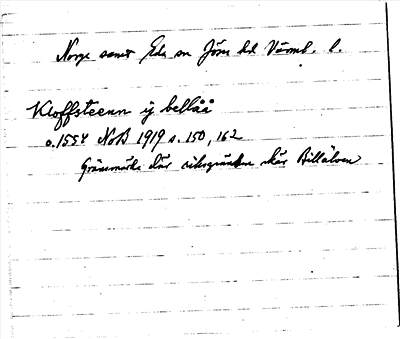 Norge samt Eda sn Jösse hd Värml. l.
Kloffsteenn ij bellåå
o. 1554 NoB 1919 s. 150, 162
Gränsmärke där riksgränsen skär Billälven